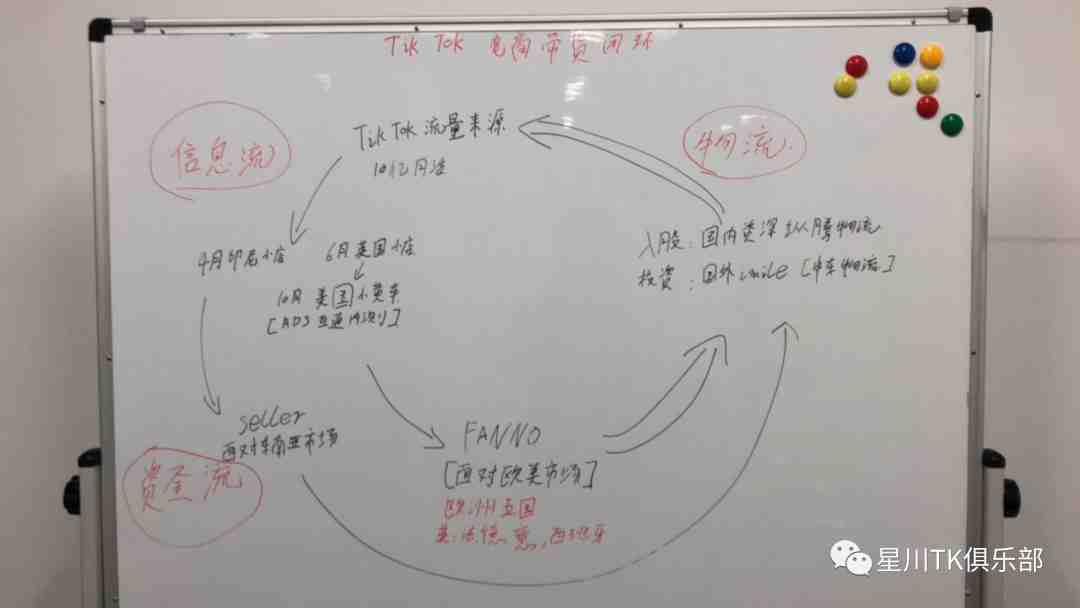 TikTok 电商带货闭环
信息流
TikTok 流量来源
10亿月活
物流
4月印尼小店
6月英国小店
10月 美国小黄车
[ADS 互通
入股:国内资深纵腾物流
投资:国外imile [中东物流]
seller
面对东南亚市场
资金流
FANNO
[面对欧美市场]
欧洲五国
英、法、德、意、西班牙
星川TK俱乐部